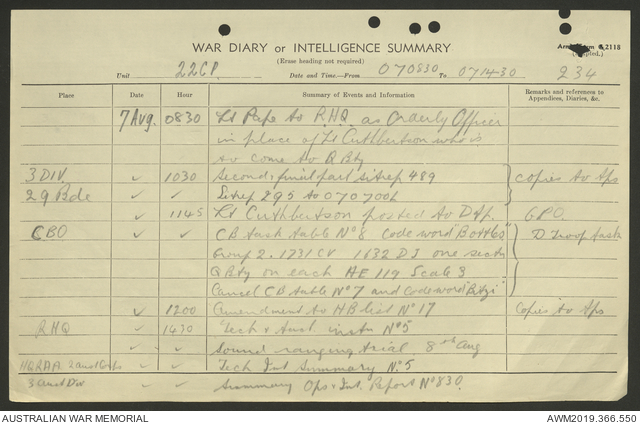 WAR DIARY or INTELLIGENCE SUMMARY
(Erase heading not required)
C2118
Unit 22CP. Date and Time—From 070830 To 071430 234
Place Date Hour Summary of Events and Information Remarks and references to Appendices, Diaries, &c.
7 Aug. 0830 Lt Pepe to R.H.Q. as Orderly Officer
in place of Lt Cuthbertson who is
to come to Q Bty
3 DIV ✓ 1030 Second & final part sitrep 489 copies to Tps
29 Bde ✓ ✓ Sitrep 295 to 070700L
✓ 1145 Lt Cuthbertson posted to D Tp. G.P.O.
CBO ✓ ✓ CB task table No 8 Code word " D Troop tasks
Group 2. 1731 CV 1632 DJ one
Q Bty on each HE 119 Scale 3
Cancel CB table No 7 and Codeword
✓ 1200 Amendment to HB list No 17 Copies to Tps
RHQ ✓ 1430 Tech & Aust instn No 5
✓ ✓ Sound ranging trial 8th Aug
HQRAA 2 aust Corps ✓ ✓ Tech Int Summary No. 5
3 aust Div ✓ ✓ Summary Ops & Int. Report No 830.
AUSTRALIAN WAR MEMORIAL AWM2019.366.550